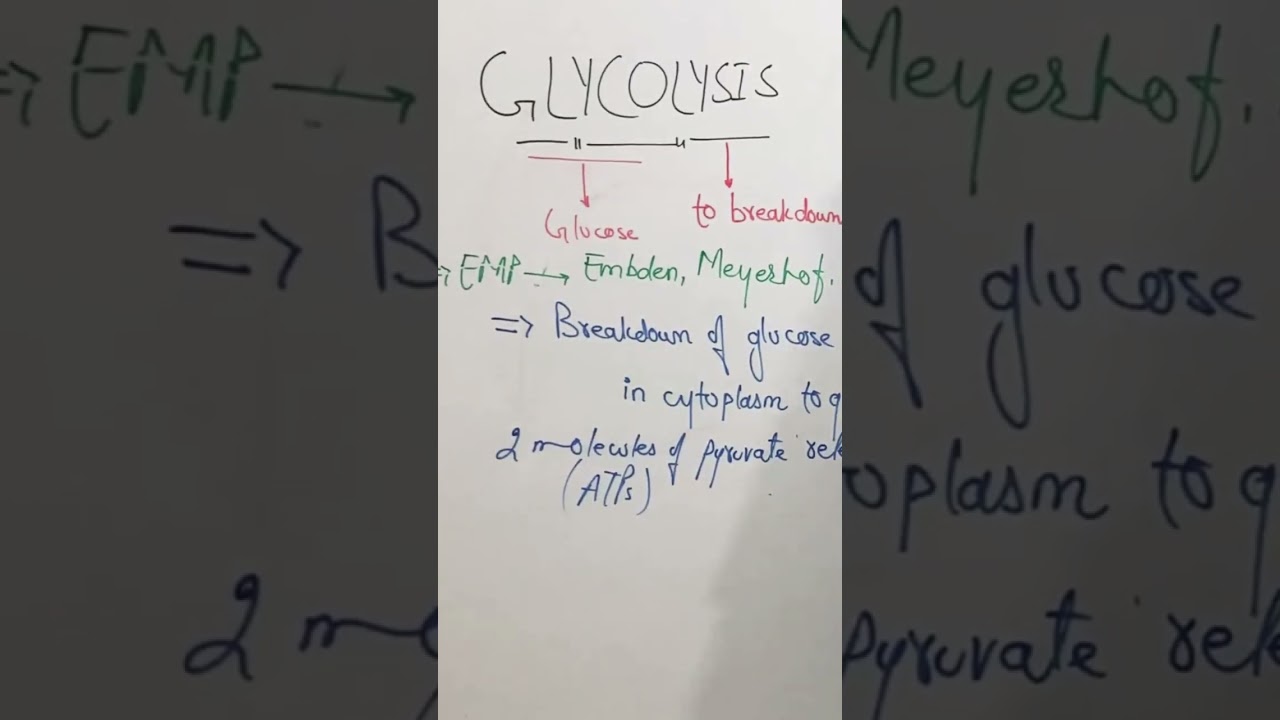 GLYCOLYSIS
Glucose to breakdown
=> EMP → Embden, Meyerhof.
=> Breakdown of glucose
in cytoplasm to
2 molecules of pyruvate
(ATPs)